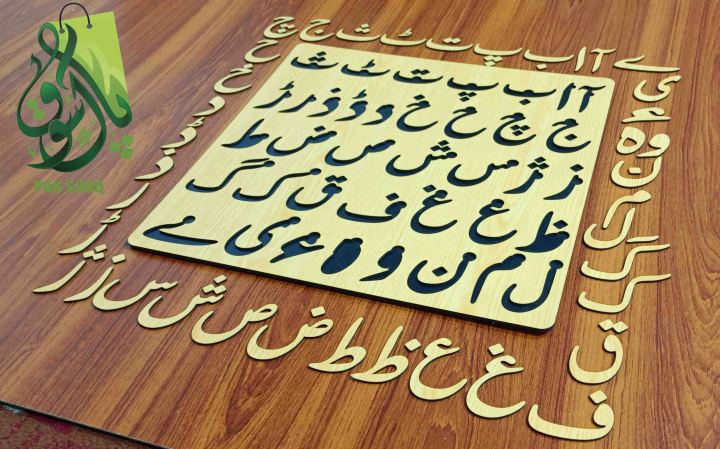 پاک سوق
PAK SOUQ
آ ا ب پ ت ٹ ث
ج چ ح خ د ڈ ذ ر ڑ
ز ژ س ش ص ض ط
ظ ع غ ف ق ک گ
ل م ن و ہ ء ی ے
آ ا ب پ ت ٹ ث ج چ
ح خ د ڈ ذ ر ڑ
ز ژ س ش ص ض ط ظ ع غ ف
ق ک گ ل م ن و ہ ء ی ے